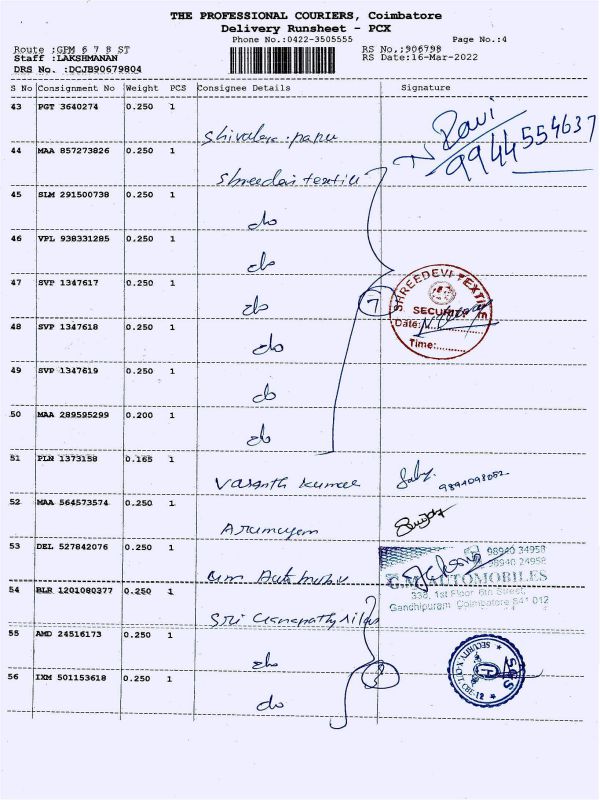 THE PROFESSIONAL COURIERS, Coimbatore
Delivery Runsheet - PCX
Phone No.:0422-3505555 Page No.:4
Route :GPM 6 7 8 ST RS No.:906798
Staff :LAKSHMANAN RS Date:16-Mar-2022
DRS No. :DCJB90679804
S No Consignment No Weight PCS Consignee Details Signature
43 PGT 3640274 0.250 1
Ravi
9944554637
44 MAA 857273826 0.250 1
Shreedevi textile
45 SLM 291500738 0.250 1
do
46 VPL 938331285 0.250 1
do
47 SVP 1347617 0.250 1
do 7
SHREEDEVI TEXTILE
SECURITY
Date:
Time:..........
48 SVP 1347618 0.250 1
do
49 SVP 1347619 0.250 1
do
50 MAA 289595299 0.200 1
do
51 PLN 1373158 0.165 1
Vasanth Kumar 9894098052
52 MAA 564573574 0.250 1
Arumugam
53 DEL 527842076 0.250 1
98940 34958
98940 24958
G.M. AUTOMOBILES
338, 1st Floor 6th Street,
Gandhipuram Coimbatore 641 012
54 BLR 1201080377 0.250 1
Sri Ganapathy Silks
55 AMD 24516173 0.250 1
do
56 IXM 501153618 0.250 1
do 3